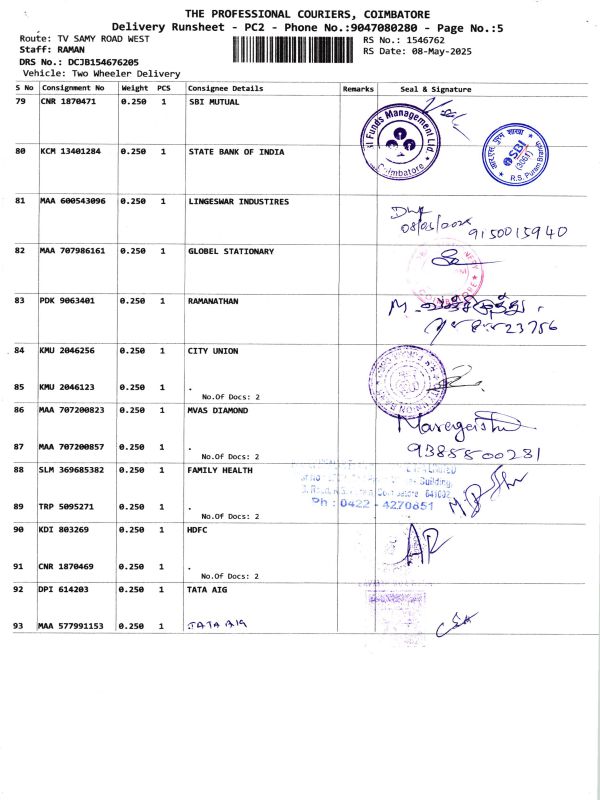 THE PROFESSIONAL COURIERS, COIMBATORE
Delivery Runsheet - PC2 - Phone No.:9047080280 - Page No.:5
Route: TV SAMY ROAD WEST
Staff: RAMAN
DRS No.: DCJB154676205
Vehicle: Two Wheeler Delivery
RS No.: 1546762
RS Date: 08-May-2025
S No Consignment No Weight PCS Consignee Details Remarks Seal & Signature
79 CNR 1870471 0.250 1 SBI MUTUAL
Funds Management Ltd.
Coimbatore
80 KCM 13401284 0.250 1 STATE BANK OF INDIA
SBI
R.S. Puram Branch
81 MAA 600543096 0.250 1 LINGESWAR INDUSTIRES
9150015940
82 MAA 707986161 0.250 1 GLOBEL STATIONARY
83 PDK 9063401 0.250 1 RAMANATHAN
M.
84 KMU 2046256 0.250 1 CITY UNION
85 KMU 2046123 0.250 1 .
No.Of Docs: 2
86 MAA 707200823 0.250 1 MVAS DIAMOND
87 MAA 707200857 0.250 1 .
9385500231
No.Of Docs: 2
88 SLM 369685382 0.250 1 FAMILY HEALTH
Building,
641002
Ph : 0422 - 4270651
89 TRP 5095271 0.250 1 .
No.Of Docs: 2
90 KDI 803269 0.250 1 HDFC
91 CNR 1870469 0.250 1 .
No.Of Docs: 2
92 DPI 614203 0.250 1 TATA AIG
93 MAA 577991153 0.250 1 TATA AIG